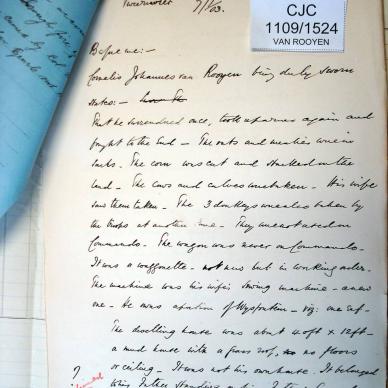 CJC
1109/1524
VAN ROOYEN
7/1/03.
Before me:—
Cornelis Johannes van Rooyen being duly sworn
states:—
That he surrendered once, took up arms again and
fought to the end — The oats and mealies were in
sacks. The corn was cut and stacked on the
land — The cows and calves were taken — His wife
saw them taken. The 3 donkeys were also taken by
the troops at another time — They were not used on
Commando. The wagon was never on Commando —
It was a waggonette — not new but in working order.
The machine was his wife's sewing machine — a new
one — He was a
The dwelling house was about 40ft × 12ft —
a mud house with a grass roof, no floors
or ceiling — It was not his own house. It belonged